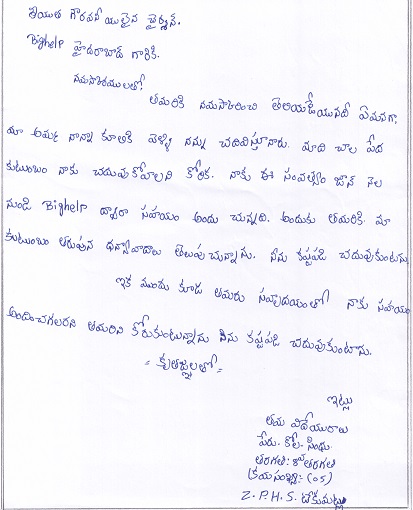 శ్రీయుత గౌరవనీయులైన చైర్మన్.
Bighelp హైదరాబాద్ గారికి.
నమస్కారములతో!
తమరికి నమస్కరించి తెలియజేయునది ఏమనగా,
మా అమ్మ నాన్నా కూలికి వెళ్ళి నన్ను చదివిస్తూనారు. మాది చాల పేద
కుటుంబం నాకు చదువుకోవాలని కోరిక. నాకు ఈ సంవత్సరం జూన్ నెల
నుండి Bighelp ద్వారా సహాయం అందు చున్నది. అందుకు తమరికి. మా
కుటుంబం తరుపున ధన్యవాదాలు తెలుపుచున్నాను. నేను కష్టపడి చదువుకుంటాను
ఇక ముందు కూడ తమరు సహృదయంతో నాకు సహాయం
అందించగలరని తమరిని కోరుకుంటున్నాను నేను కష్టపడి చదువుకుంటాను.
= కృతజ్ఞలతో =
ఇట్లు
తమ విదేయురాలు
పేరు. కోల. సింధు.
తరగతి: 8వ తరగతి
క్రమసంఖ్య:- (05)
Z.P.H.S. టేకుమట్ల